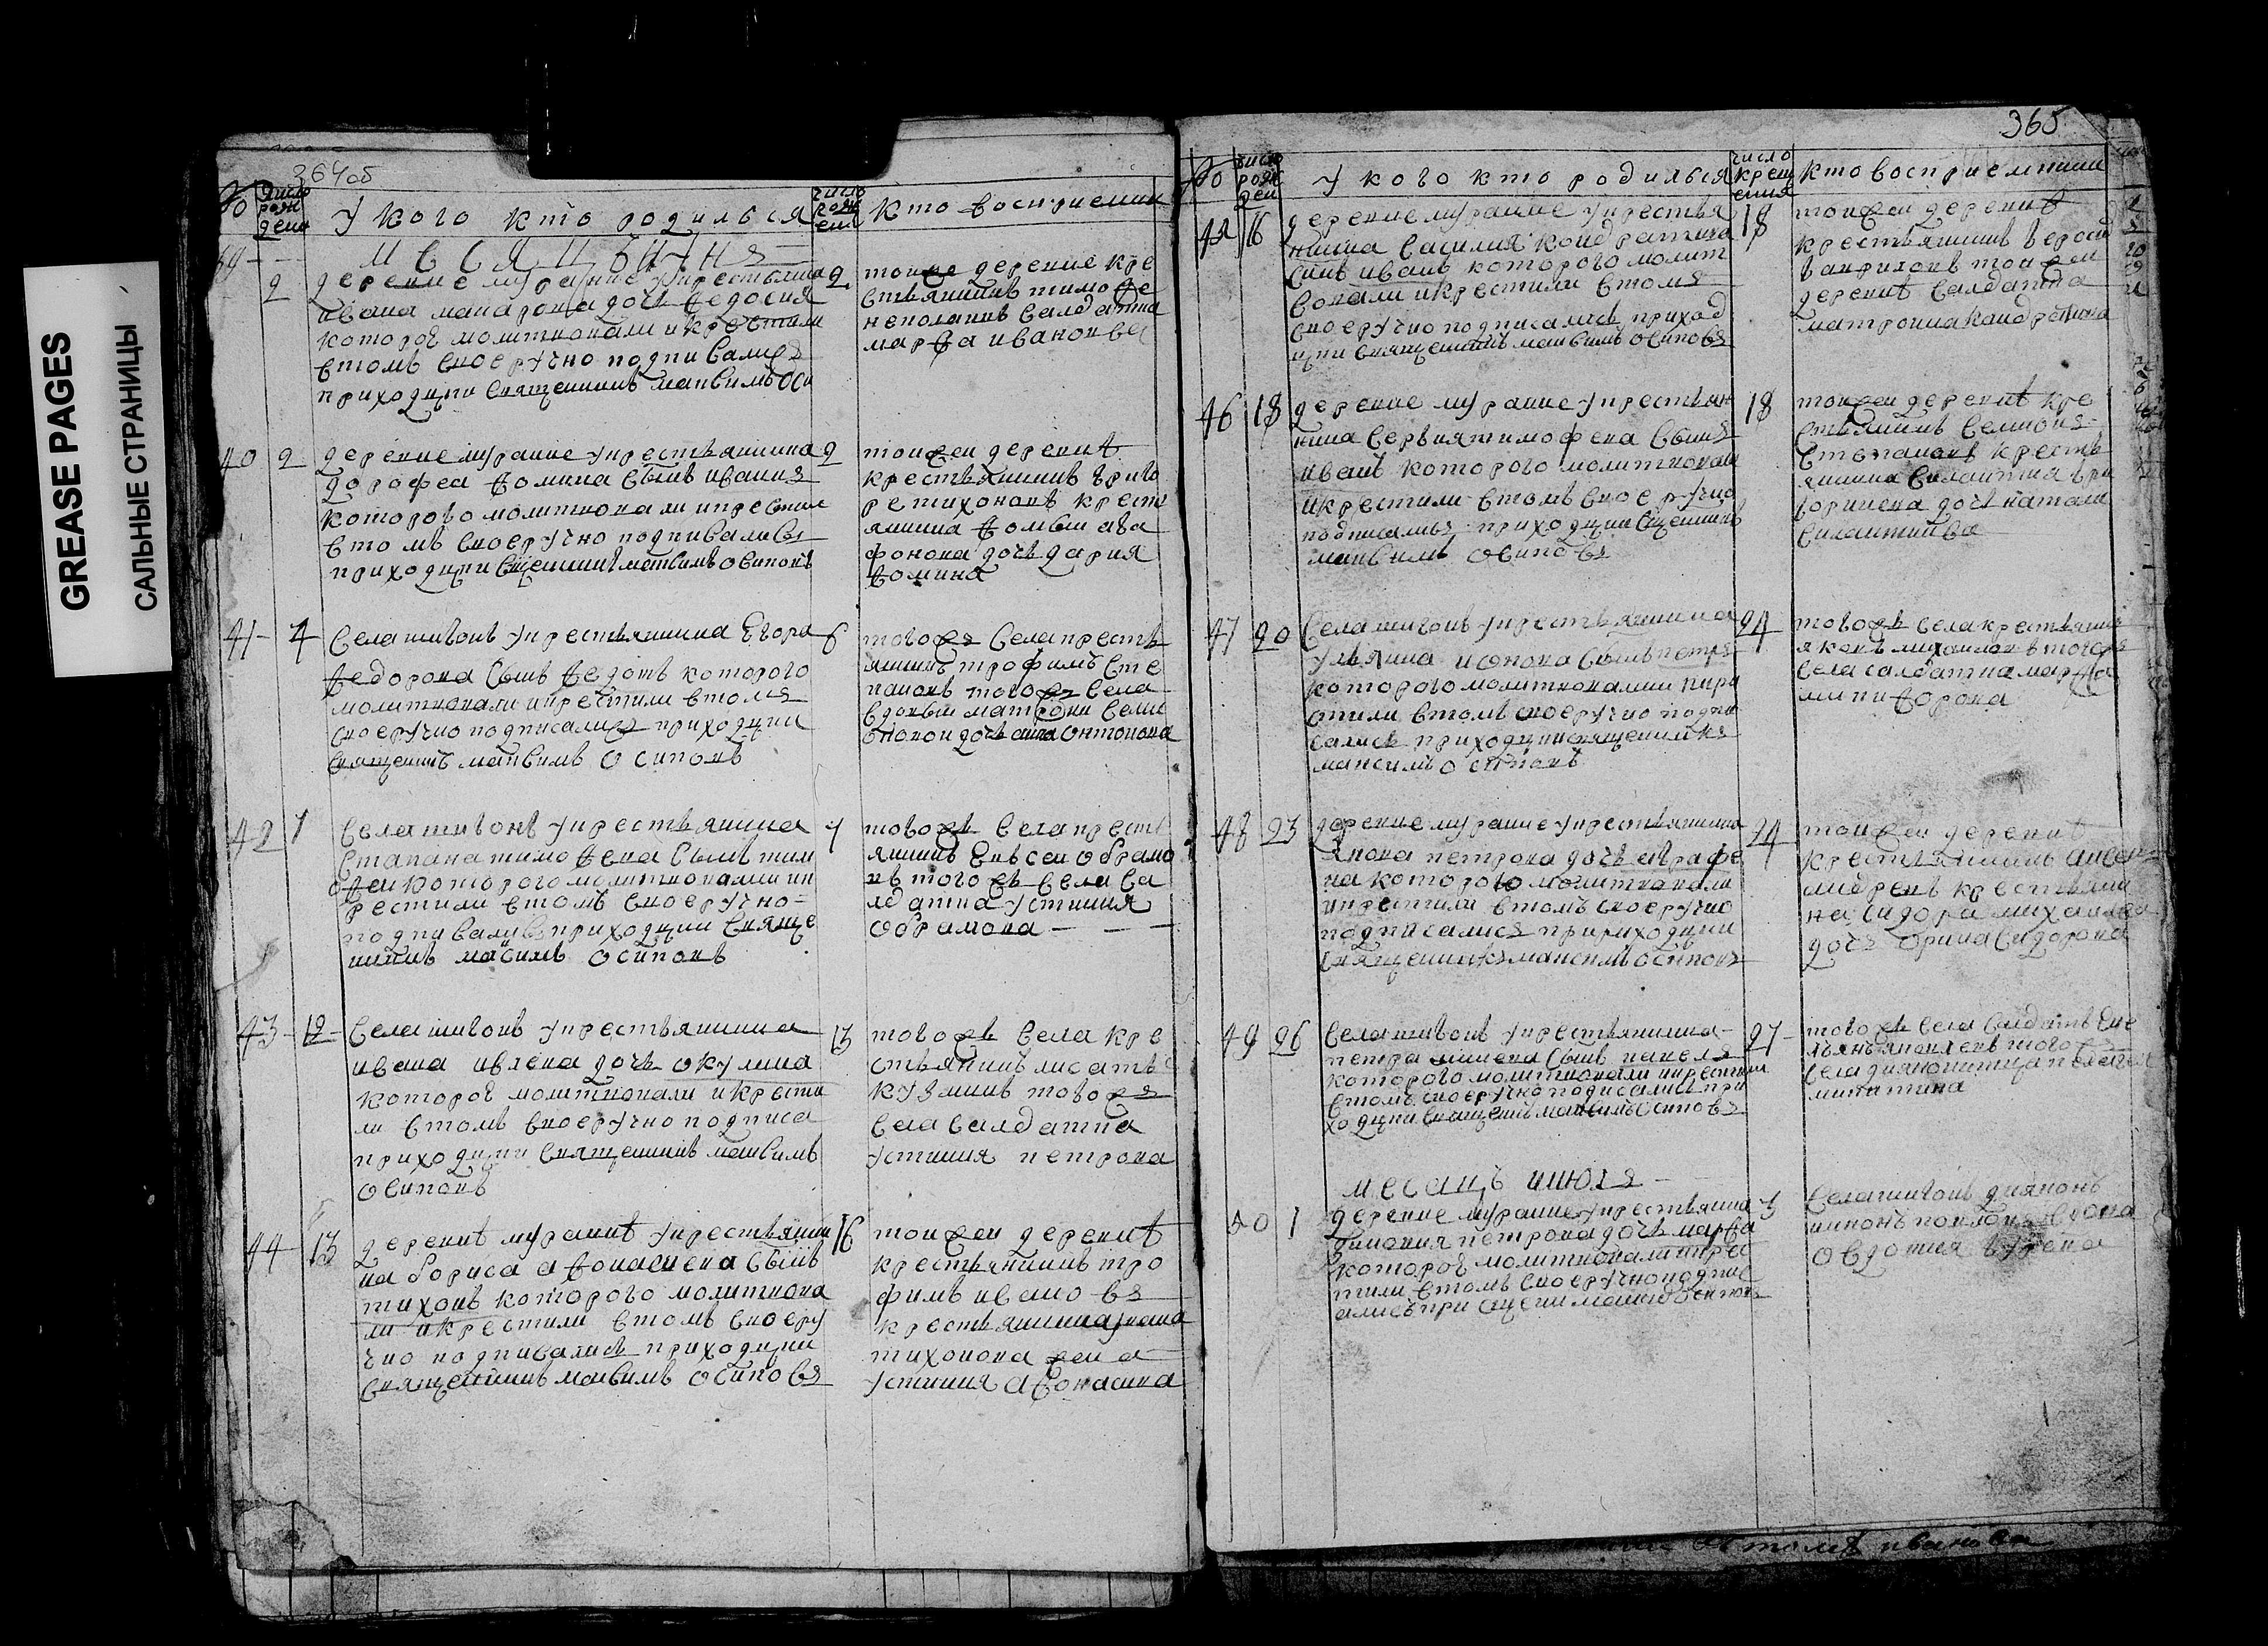 GREASE PAGES
САЛЬНЫЕ СТРАНИЦЫ
364об
№
число
рож
дени
У кого кто родился
число
кто восприемник
месяц июня
39
2
деревне муравие у крестьянина
ивана макарова дочь федосия
которое молитвовали и крестили
в томъ своеручно подписался
приходцки священникъ максимъ оси
2
тоиже деревне кре
стьянинъ тимофе
салдатка
марфа иванов
40
2
деревне муравие у крестьянина
дорофея фомина сынъ иванъ
которого молитвовали и крестили
в томъ своеручно подписались
приходцки сщенникъ максимъ осиповъ
2
тоижеи деревнѣ
крестьянинъ григо
ре тихоновъ крест
янина фомы ага
фонова дочь дария
фомина
41
4
села шигонъ у крестьянина егора
федорова сынъ федотъ которого
молитвовали и крестили в томъ
своеручно подписался приходцки
священникъ максимъ осиповъ
6
тогожъ села кресть
янинъ трофимъ сте
пановъ тогожъ села
вдовы матрони семи
оновои дочь анна онтонова
42
7
села шигонъ у крестьянина
стапана тимофева сынъ тим
офеи которого молитвовали и к
рестили в томъ своеручно
подписались приходцки свяще
нникъ масимъ осиповъ
7
тогожъ села крест
янинъ евсеи обрамо
въ тогожъ села са
лдатка устиния
обрамова
43
12
села шигонъ у крестьянина
ивана ивлева дочь окулина
которое молитвовали и крести
ли в томъ своеручно подписа
приходцки священникъ максимъ
осиповъ
13
тогожъ села кре
стьянинъ лисатъ
кузминъ тогожъ
села салдатка
устиния петрова
44
13
деревнѣ муравиѣ у крестьяни
на бориса афонасиева сынъ
тихонъ которого молитвова
ли и крестили в томъ своеру
чно подписались приходцки
священникъ максимъ осиповъ
16
тоижеи деревнѣ
крестьянинъ тро
фимъ ивановъ
крестьянина
тихонова жена
устиния афонасива
365
№
число
рож
ден
У кого кто родился
число
крещ
ения
кто восприемники
16
деревне муравие у крестья
нина василия кондратива
сынъ иванъ которого молит
вовали и крестили в томъ
своеручно подписались приход
цки священникъ максимъ осиповъ
18
тоижеи деревнѣ
крестьянинъ
тоижеи
деревнѣ салдатка
матрона кондратива
46
18
деревне муравие у крестьян
нина сергия тимофева сынъ
иванъ которого молитвовали
и крестили в томъ своеручно
подписались приходцки сщенникъ
максимъ осиповъ
18
тоижеи деревнѣ кре
стьянинъ семионъ
степановъ кресть
янина силантия гри
горивева дочь натали
силантива
47
20
села шигонъ у крестьянина
ульяна исонова сынъ петръ
которого молитвовали и кре
стили в томъ своеручно подпи
сались приходцки священникъ
максимъ осиповъ
24
тогожъ села крестьянин
яковъ михаиловъ тогожъ
села салдатка марфа
никифорова
48
23
деревне муравие у крестьянина
якова петрова дочь аграфе
на которого молитвовали
и крестили в томъ своеручно
подписался приходцки
священникъ максимъ осиповъ
24
тоижеи деревнѣ
крестьянинъ
андреевъ крестьяни
на сидора михаилова
дочь орина сидорова
49
26
села шигонъ у крестьянина
петра минева сынъ павелъ
которого молитвовали и крестили
в томъ своеручно подписались при
ходцки священникъ максимъ осиповъ
27
тогожъ села салдатъ еме
льянъ яковлевъ тогожъ
села дияконитца пелагея
никитина
месацъ июля
50
1
деревне муравие у крестьянина
петрова дочь марфа
которое молитвовали и кре
стили в томъ своеручно подпис
ались при сщенни максимъ осиповъ
3
села шигонъ дияконъ
овдотия